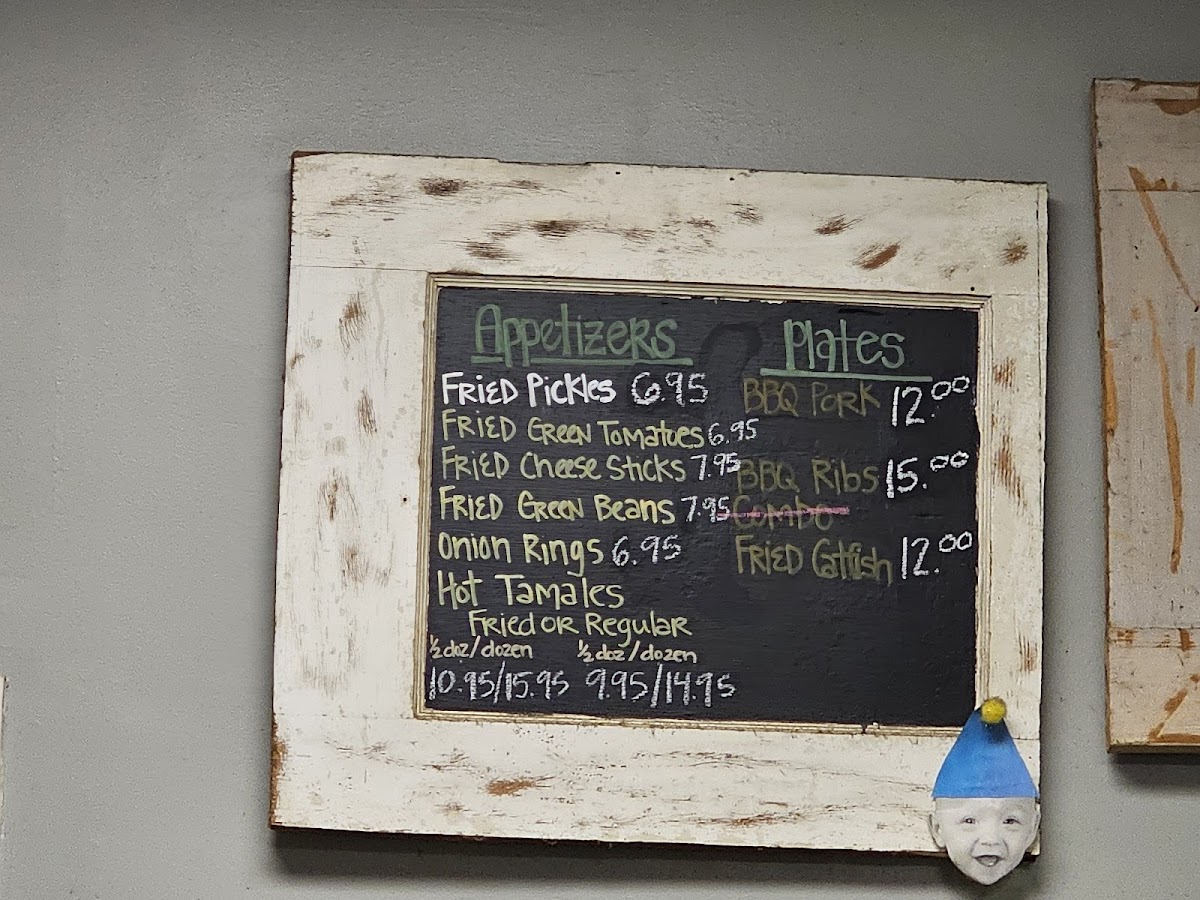 Appetizers
Fried Pickles 6.95
Fried Green Tomatoes 6.95
Fried Cheese Sticks 7.95
Fried Green Beans 7.95
Onion Rings 6.95
Hot Tamales
Fried or Regular
½ doz/dozen ½ doz/dozen
10.95/15.95 9.95/14.95
Plates
BBQ Pork 12.00
BBQ Ribs 15.00
Combo
Fried Catfish 12.00